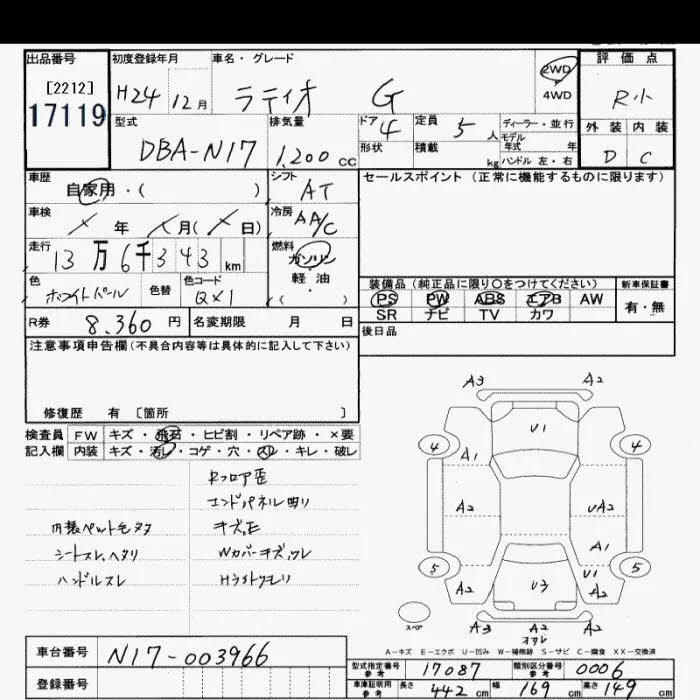 出品番号
[2212]
17119
初度登録年月
H24 12月
車名・グレード
ラティオ G
2WD
4WD
評価点
R小
外装 内装
D C
型式
DBA-N17
排気量
1,200 cc
ドア 4
形状
定員 5 人
積載 kg
ディーラー・並行
モデル年式 年
ハンドル 左・右
車歴
自家用・( )
シフト
AT
セールスポイント (正常に機能するものに限ります)
車検
× 年 × 月 (× 日)
冷房
AA/C
走行
13万6千343 km
燃料
ガソリン
軽・油
( )
色
ホワイトパール
色替
色コード
QX1
装備品 (純正品に限り〇をつけてください)
PS PW ABS エアB AW
SR ナビ TV カワ
新車保証書
有・無
R券 8,360 円
名変期限 月 日
後日品
注意事項申告欄 (不具合内容等は具体的に記入して下さい)
修復歴 有 [箇所 ]
検査員 FW キズ・飛石・ヒビ割・リペア跡・×要
記入欄 内装 キズ・汚レ・コゲ・穴・スレ・キレ・破レ
Rフロア歪
エンドパネル凹リ
内装ペット毛多
キズ、E
シートスレ、ヘタリ
Wカバーキズ、ワレ
ハンドルスレ
A3 A2
U1
4 4
A1
A2 UA2
A1
5 5
U1
A2 U3 A2
スペア
A3 A2 A2
A-キズ E-エクボ U-凹み W-補修跡 S-サビ C-腐食 XX-交換済
車台番号
N17-003966
登録番号
型式指定番号 参考 17087
類別区分番号 参考 0006
車庫証明用 参考 長さ 442 cm 幅 169 cm 高さ 149 cm